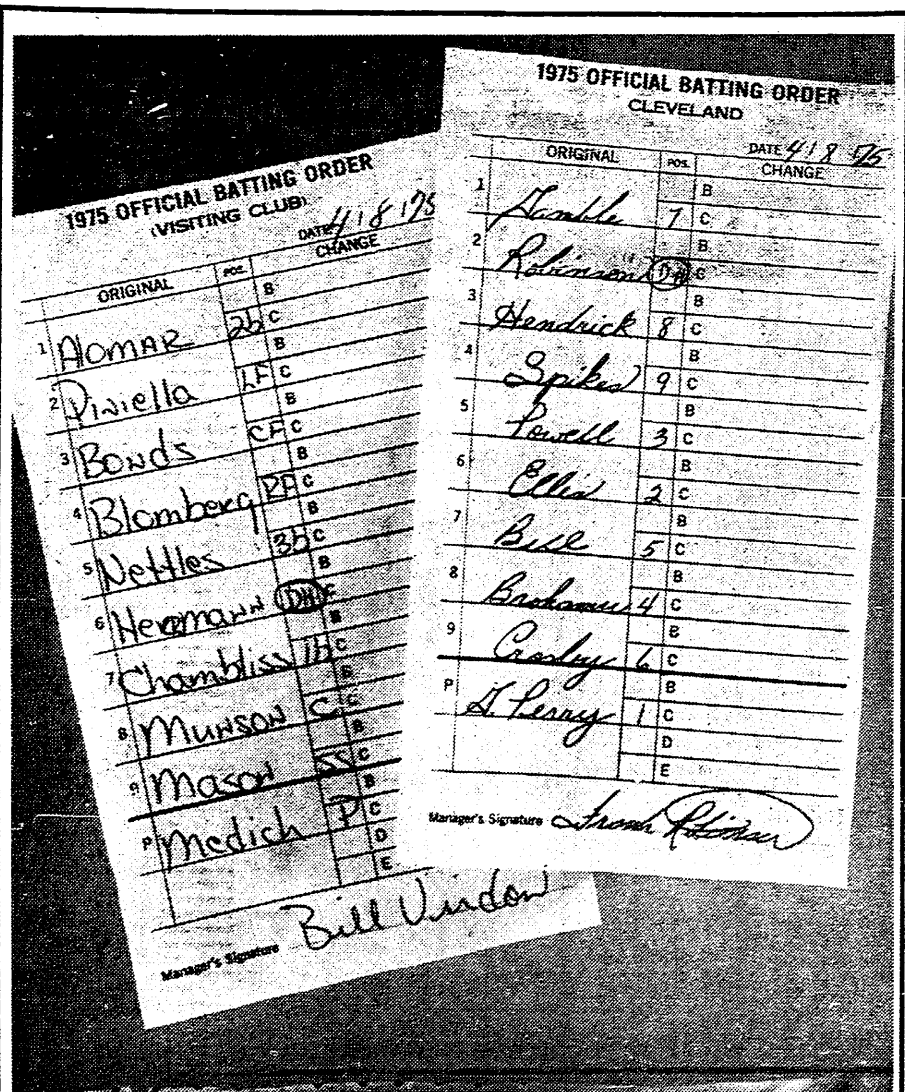 1975 OFFICIAL BATTING ORDER
(VISITING CLUB)
DATE 4/8/75
ORIGINAL POS. CHANGE
B
1 Alomar 2b C
B
2 Piniella LF C
B
3 Bonds CF C
B
4 Blomberg RF C
B
5 Nettles 3b C
B
6 Herrmann DH C
B
7 Chambliss 1b C
B
8 Munson C C
B
9 Mason SS C
B
P Medich P C
D
E
Manager's Signature Bill Virdon
1975 OFFICIAL BATTING ORDER
CLEVELAND
DATE 4/8/75
ORIGINAL POS. CHANGE
B
1 Gamble 7 C
B
2 Robinson DH C
B
3 Hendrick 8 C
B
4 Spikes 9 C
B
5 Powell 3 C
B
6 Ellis 2 C
B
7 Bell 5 C
B
8 Brohamer 4 C
B
9 Crosby 6 C
B
P G. Perry 1 C
D
E
Manager's Signature Frank Robinson